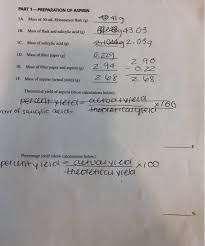 PART 1—PREPARATION OF ASPIRIN
1A. Mass of 50 mL Erlenmeyer flask (g)
1B. Mass of flask and salicylic acid (g) 43.03
1C. Mass of salicylic acid (g) 2.03g
1D. Mass of filter paper (g) 0.22g
1E. Mass of filter paper and aspirin (g) 2.94 2.90
0.22
1F. Mass of aspirin (actual yield) (g) 2.68 2.68
Theoretical yield of aspirin (show calculations below)
percent yield = actual yield x100
of salicylic acid= theoretical yield
g
Percentage yield (show calculations below)
percent yield = actual yield x100
theoretical yield
%